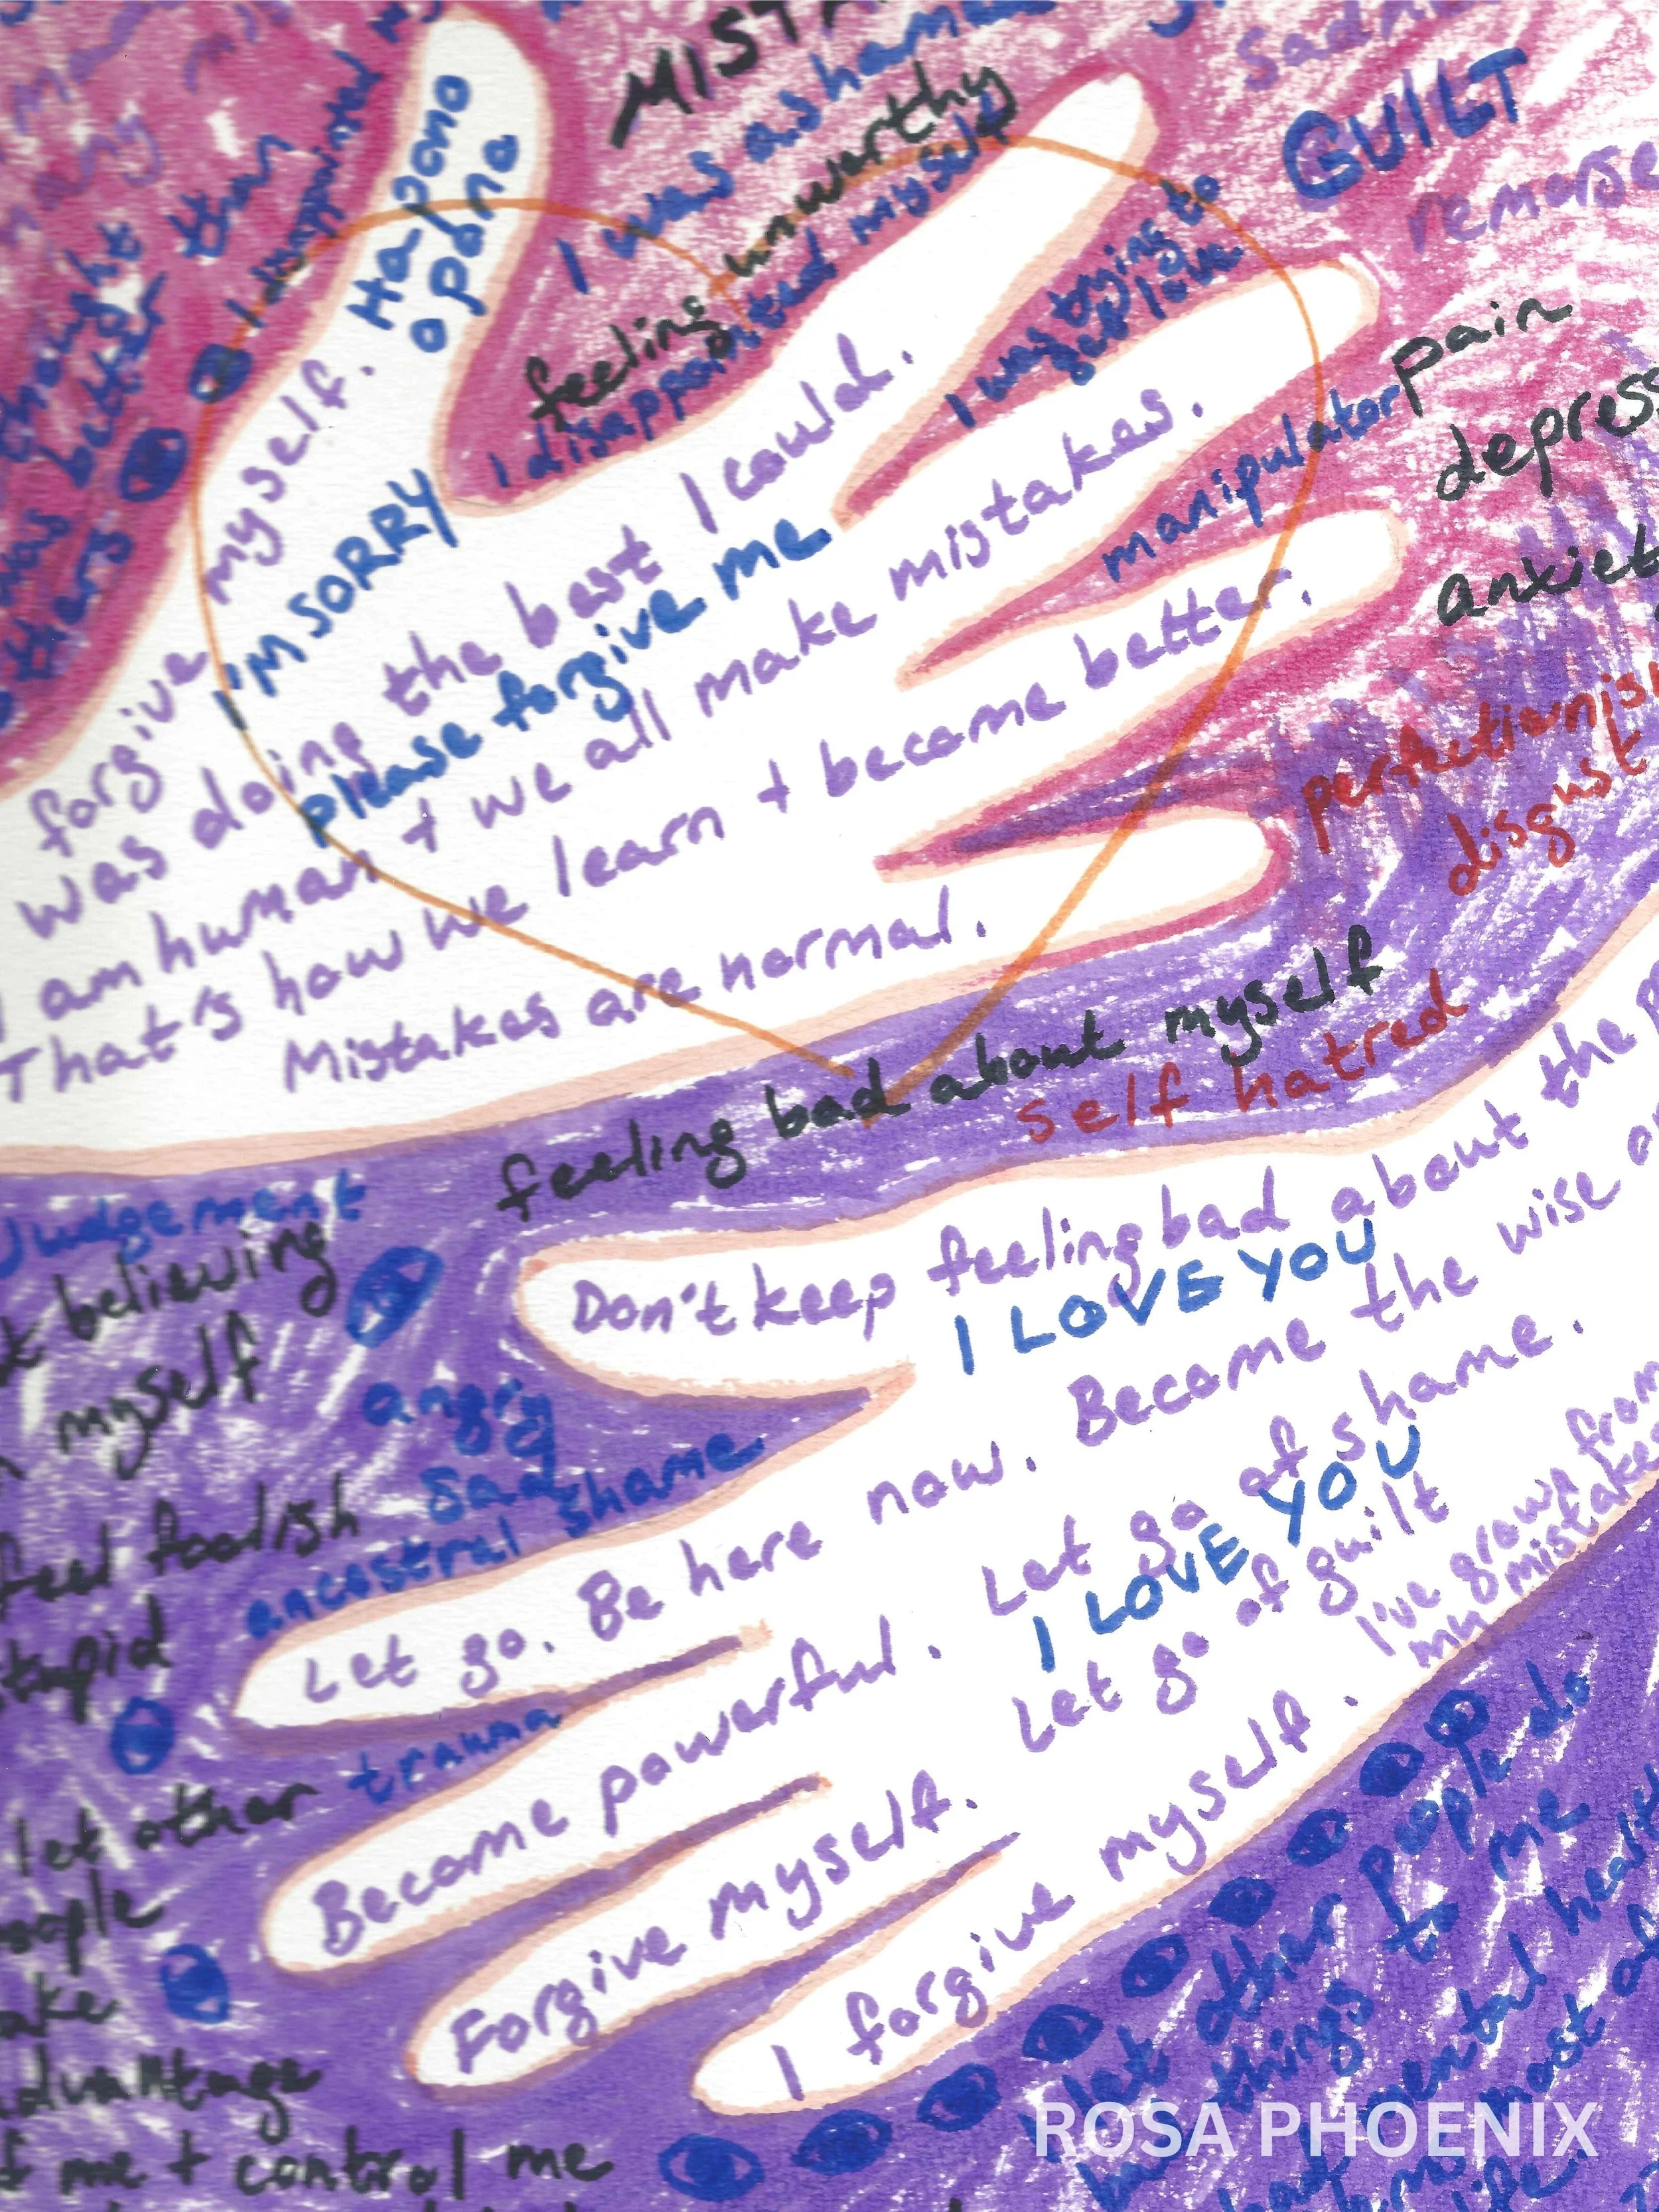 MISTA
I was ashame
feeling unworthy
I disappointed myself
sadn
GUILT
remorse
I was trying to
get love
manipulator
pain
depress
anxiet
perfectionis
disgust
thought
better than
was
others
I disappointed
Ha'pono
opono
forgive myself.
I'M SORRY
was doing the best I could.
please forgive me
I am human + we all make mistakes.
That's how we learn + become better.
Mistakes are normal.
feeling bad about myself
self hatred
Judgement
t believing
myself
angry
sad
feel foolish
ancestral shame
stupid
trauma
let other
people
take
advantage
f me + control me
Don't keep feeling bad about the p
I LOVE YOU
Let go. Be here now. Become the wise a
Become powerful. Let go of shame.
I LOVE YOU
Forgive myself. Let go of guilt
I've grown from
my mistakes
I forgive myself.
I let other people do
things to me
bad mental healt
most of
life
ROSA PHOENIX